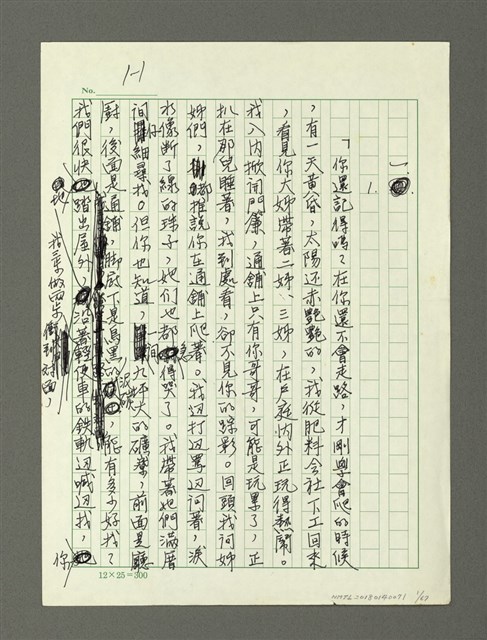 No.
1-1
一、
1.
「你還記得嗎？在你還不會走路，才剛學會爬的時候
，有一天黃昏，太陽還赤艷艷的，我從肥料會社下工回來
，看見你大姊帶著二姊、三姊，在戶庭內外正玩得熱鬧。
我入內掀開門簾，通舖上只有你哥哥，可能是玩累了，正
趴在那兒睡著，我到處看，卻不見你的踪影。回頭我问姊
姊們，都推說你在通舖上爬著。我边打边罵边问著，淚
水像斷了線的珠子，她們也都急得哭了。我帶著她們滿厝
间仔細尋找。但你也知道，一间九坪大的礦寮，前面是廳
廚，後面是通舖，腳底下是烏黑的泥碳地，能有多少好找？
我們很快踏出屋外，沿著輕便車的鉄軌边喊边找，你
我三步做兩步衝到对面，
12×25=300
NMTL20180140071
1/68